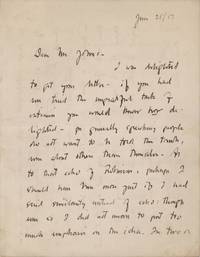 Jan 25/17
Dear Mr. Jones -
I was delighted
to get your letter - if you had
not tried the ungrateful task of
criticism you would know how de-
lighted - so generally speaking people
do not want to be told the truth,
even about them themselves. As
to that echo of Robinson, perhaps I
should have been more just if I had
said similarity instead of echo, though
even so I did not mean to put too
much emphasis on the idea. In two or